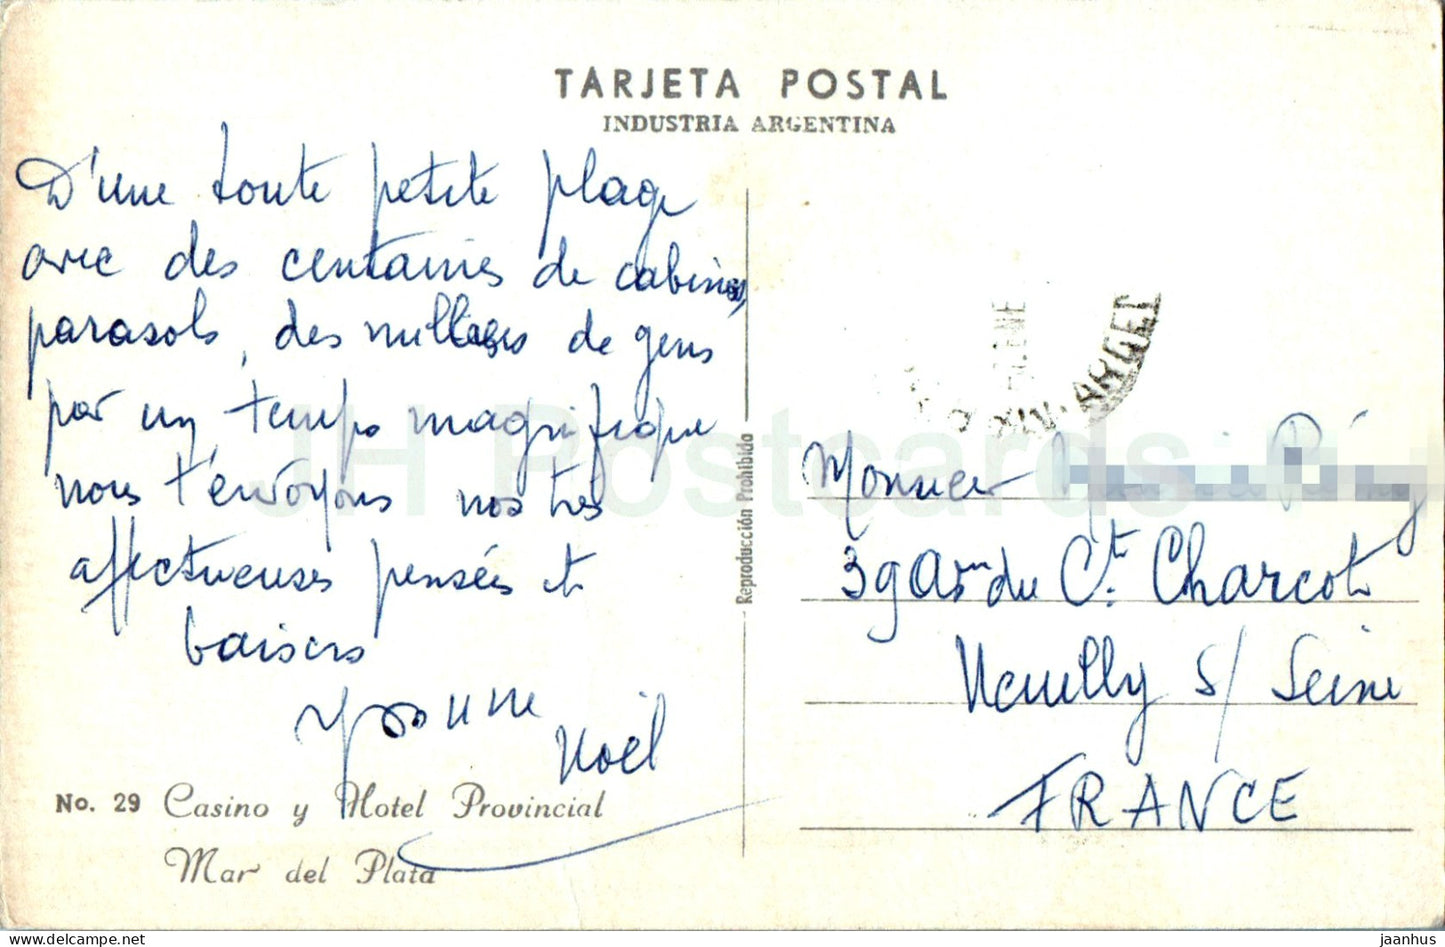 TARJETA POSTAL
INDUSTRIA ARGENTINA
D'une toute petite plage
avec des centaines de cabines,
parasols, des milliers de gens
par un temps magnifique
nous t'envoyons nos très
affectueuses pensées et
baisers
Yvonne
Noël
No. 29 Casino y Hotel Provincial
Mar del Plata
Reproducción Prohibida
ARGEN
Monsieur
39 du Ct. Charcot
Neuilly s/ Seine
FRANCE
JH Postcards
jaanhus.com